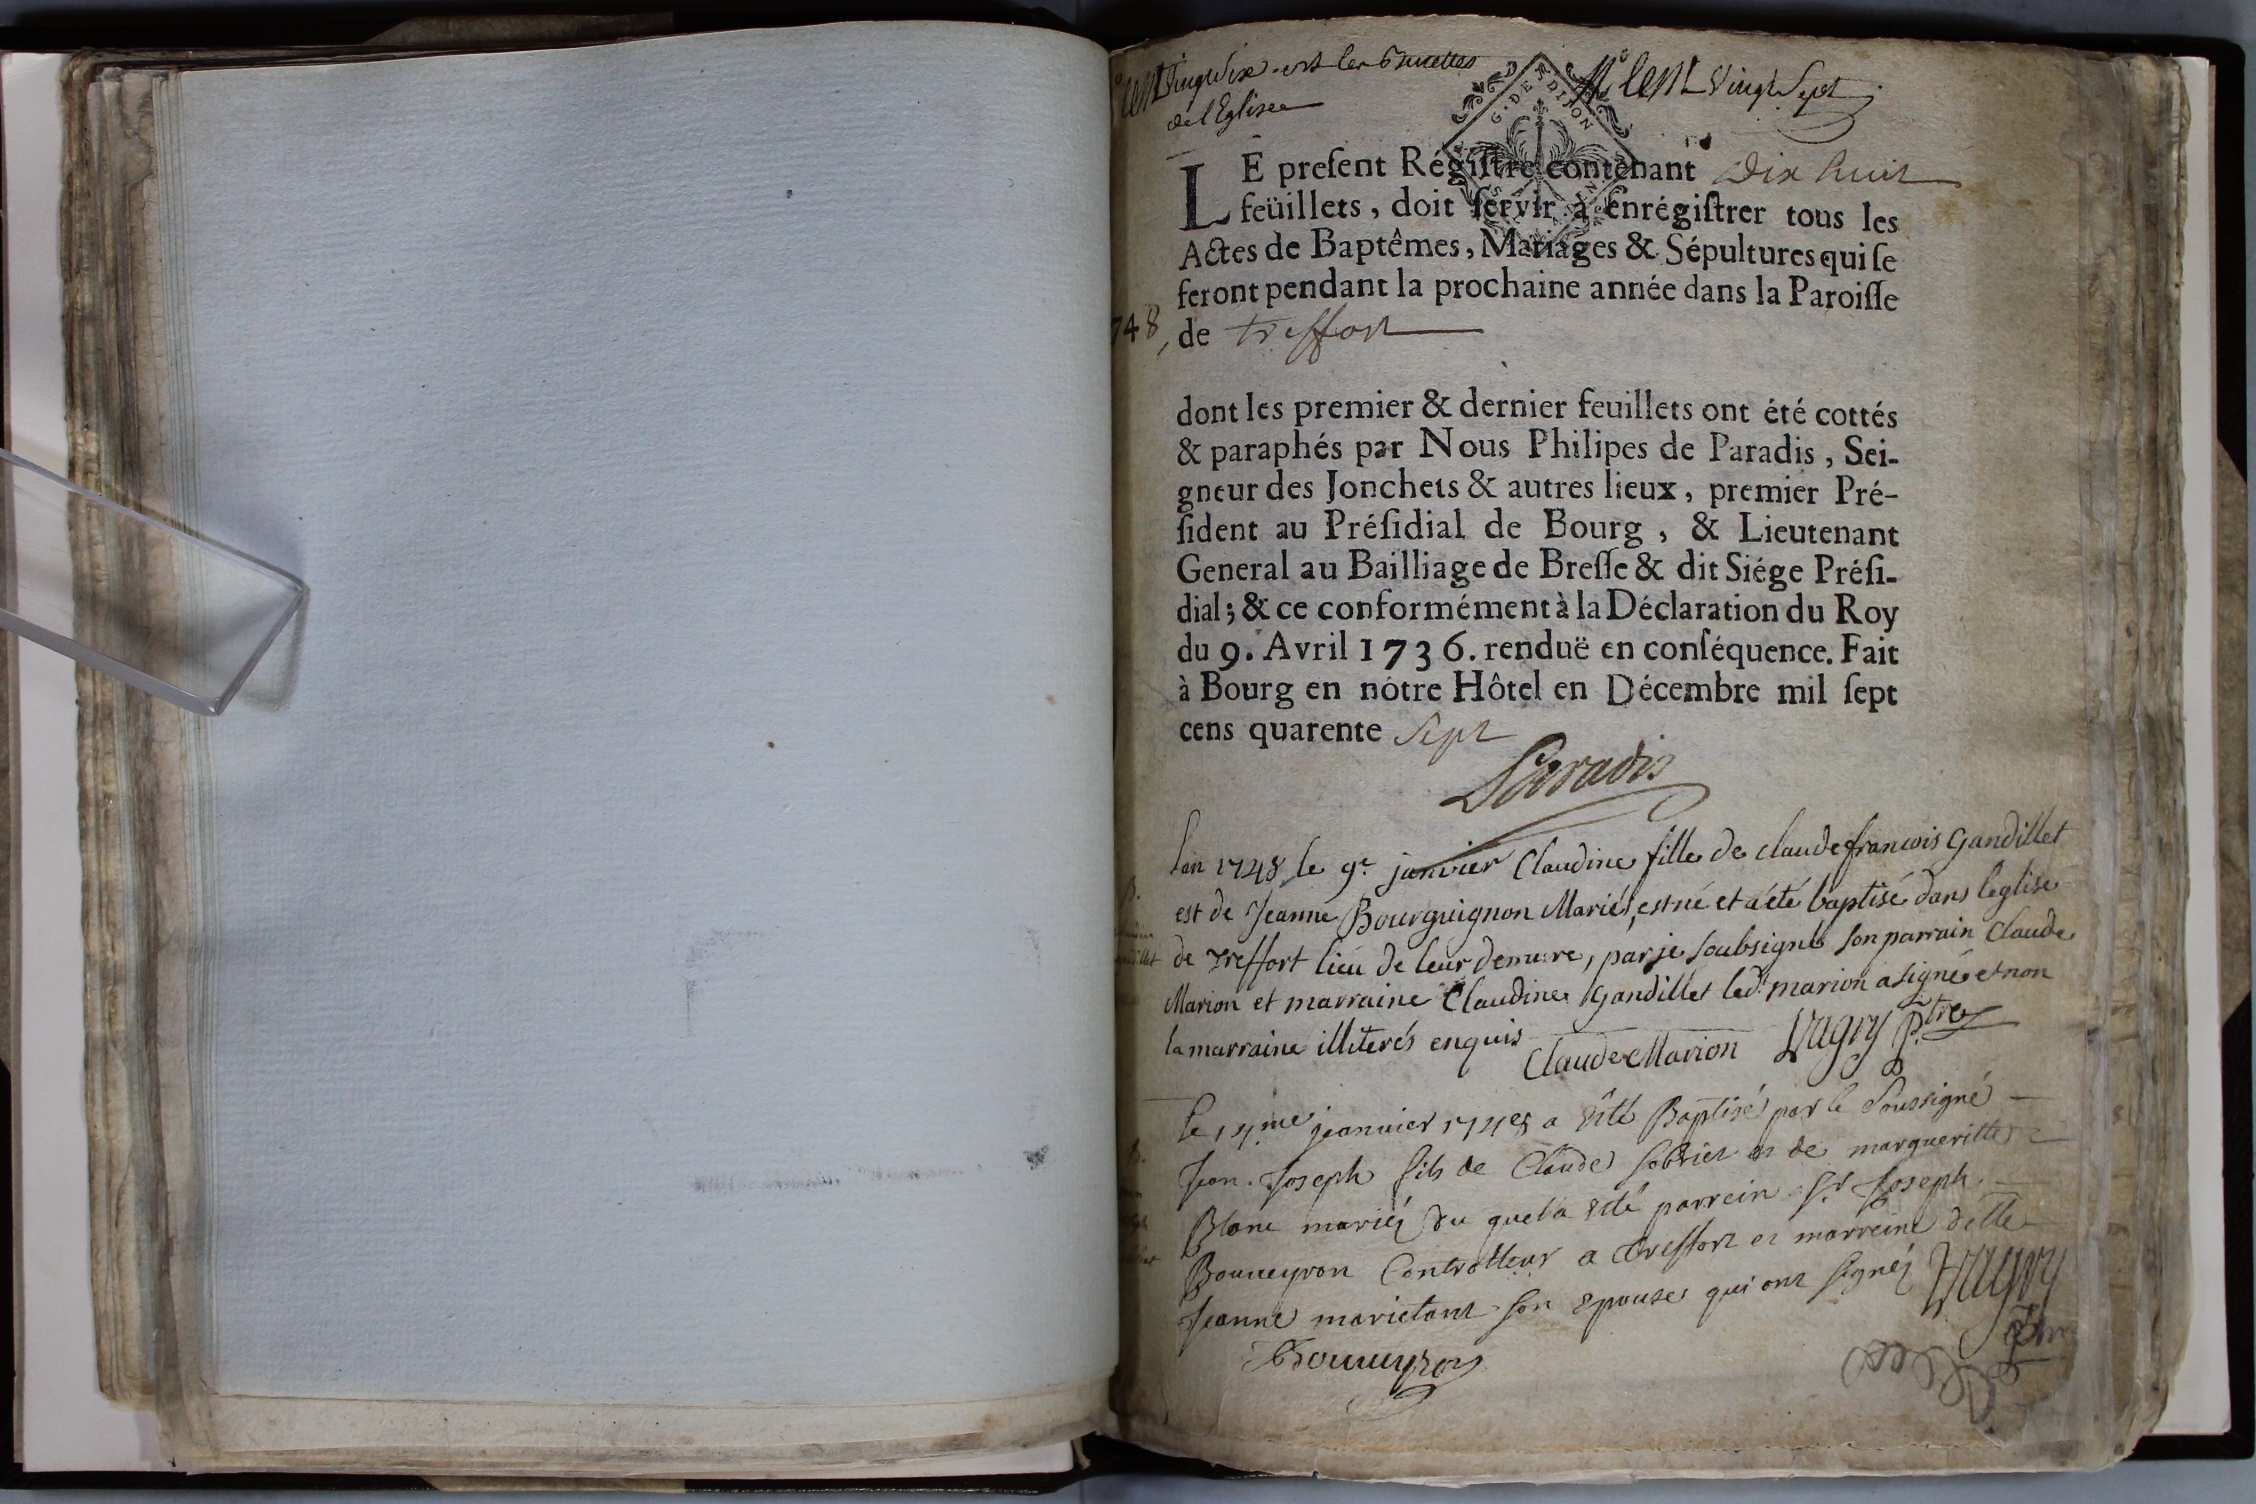 Cent vingt Six
de l'Eglise
N.º Cent Vingt Sept
G. DE DIJON
LE preſent Régiſtre contenant Dix huit
feüillets, doit ſervir à enrégiſtrer tous les
Actes de Baptêmes, Mariages & Sépultures qui ſe
feront pendant la prochaine année dans la Paroiſſe
748, de treffort
dont les premier & dernier feuillets ont été cottés
& paraphés par Nous Philipes de Paradis, Sei-
gneur des Jonchets & autres lieux, premier Pré-
ſident au Préſidial de Bourg, & Lieutenant
General au Bailliage de Breſſe & dit Siége Préſi-
dial; & ce conformément à la Déclaration du Roy
du 9. Avril 1736. renduë en conſéquence. Fait
à Bourg en nótre Hôtel en Décembre mil ſept
cens quarente Sept
Paradis
L'an 1748 le 9e janvier Claudine fille de claude francois Gandillet
est de Jeanne Bourguignon Mariés, est né et a été baptisé dans leglise
de Treffort lieu de leur demure, par je soubsigné son parrain Claude
Marion et marraine Claudine Gandillet led.t marion a signé et non
la marraine illiterés enquis Claude Marion Vugry p.tre
Le 14me jeanvier 1748 a été Baptisé par le Soussigné
Jean Joseph fils de Claude et de margueritte
Blanc mariéz du quel a été parrein Sr Joseph
Bouveyron Controlleur a Treffort et marreine delle
Jeanne marietant son epouse qui ont signéz Vugry
Bouveyron ptre